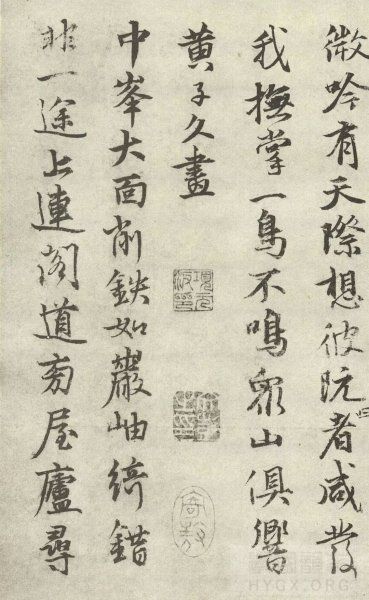 微吟有天際想彼阮者咸發
我撫掌一鳥不鳴衆山俱響
黃子久畫
中峯大面削鉄如巖岫綺錯
非一途上連閣道旁屋廬尋
HYGX.ORG